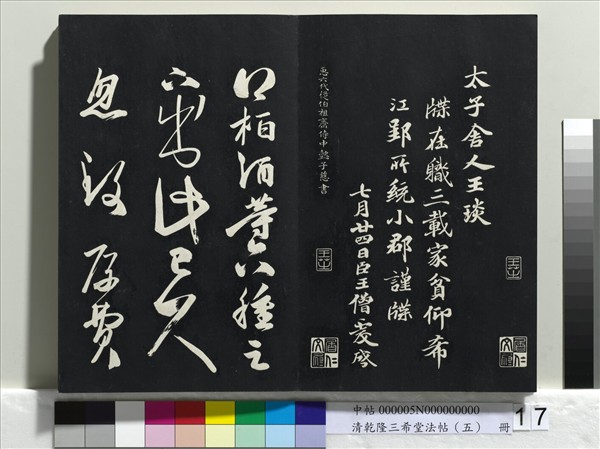 太子舍人王琰
牒在職三載家貧仰希
江郢所統小郡謹牒
七月廿四日臣王僧虔啓
六代從伯祖齊侍中懿子慈書
柏酒等六種足
下出此已久
忽致厚費
中帖 000005N000000000
清乾隆三希堂法帖（五） 冊
17